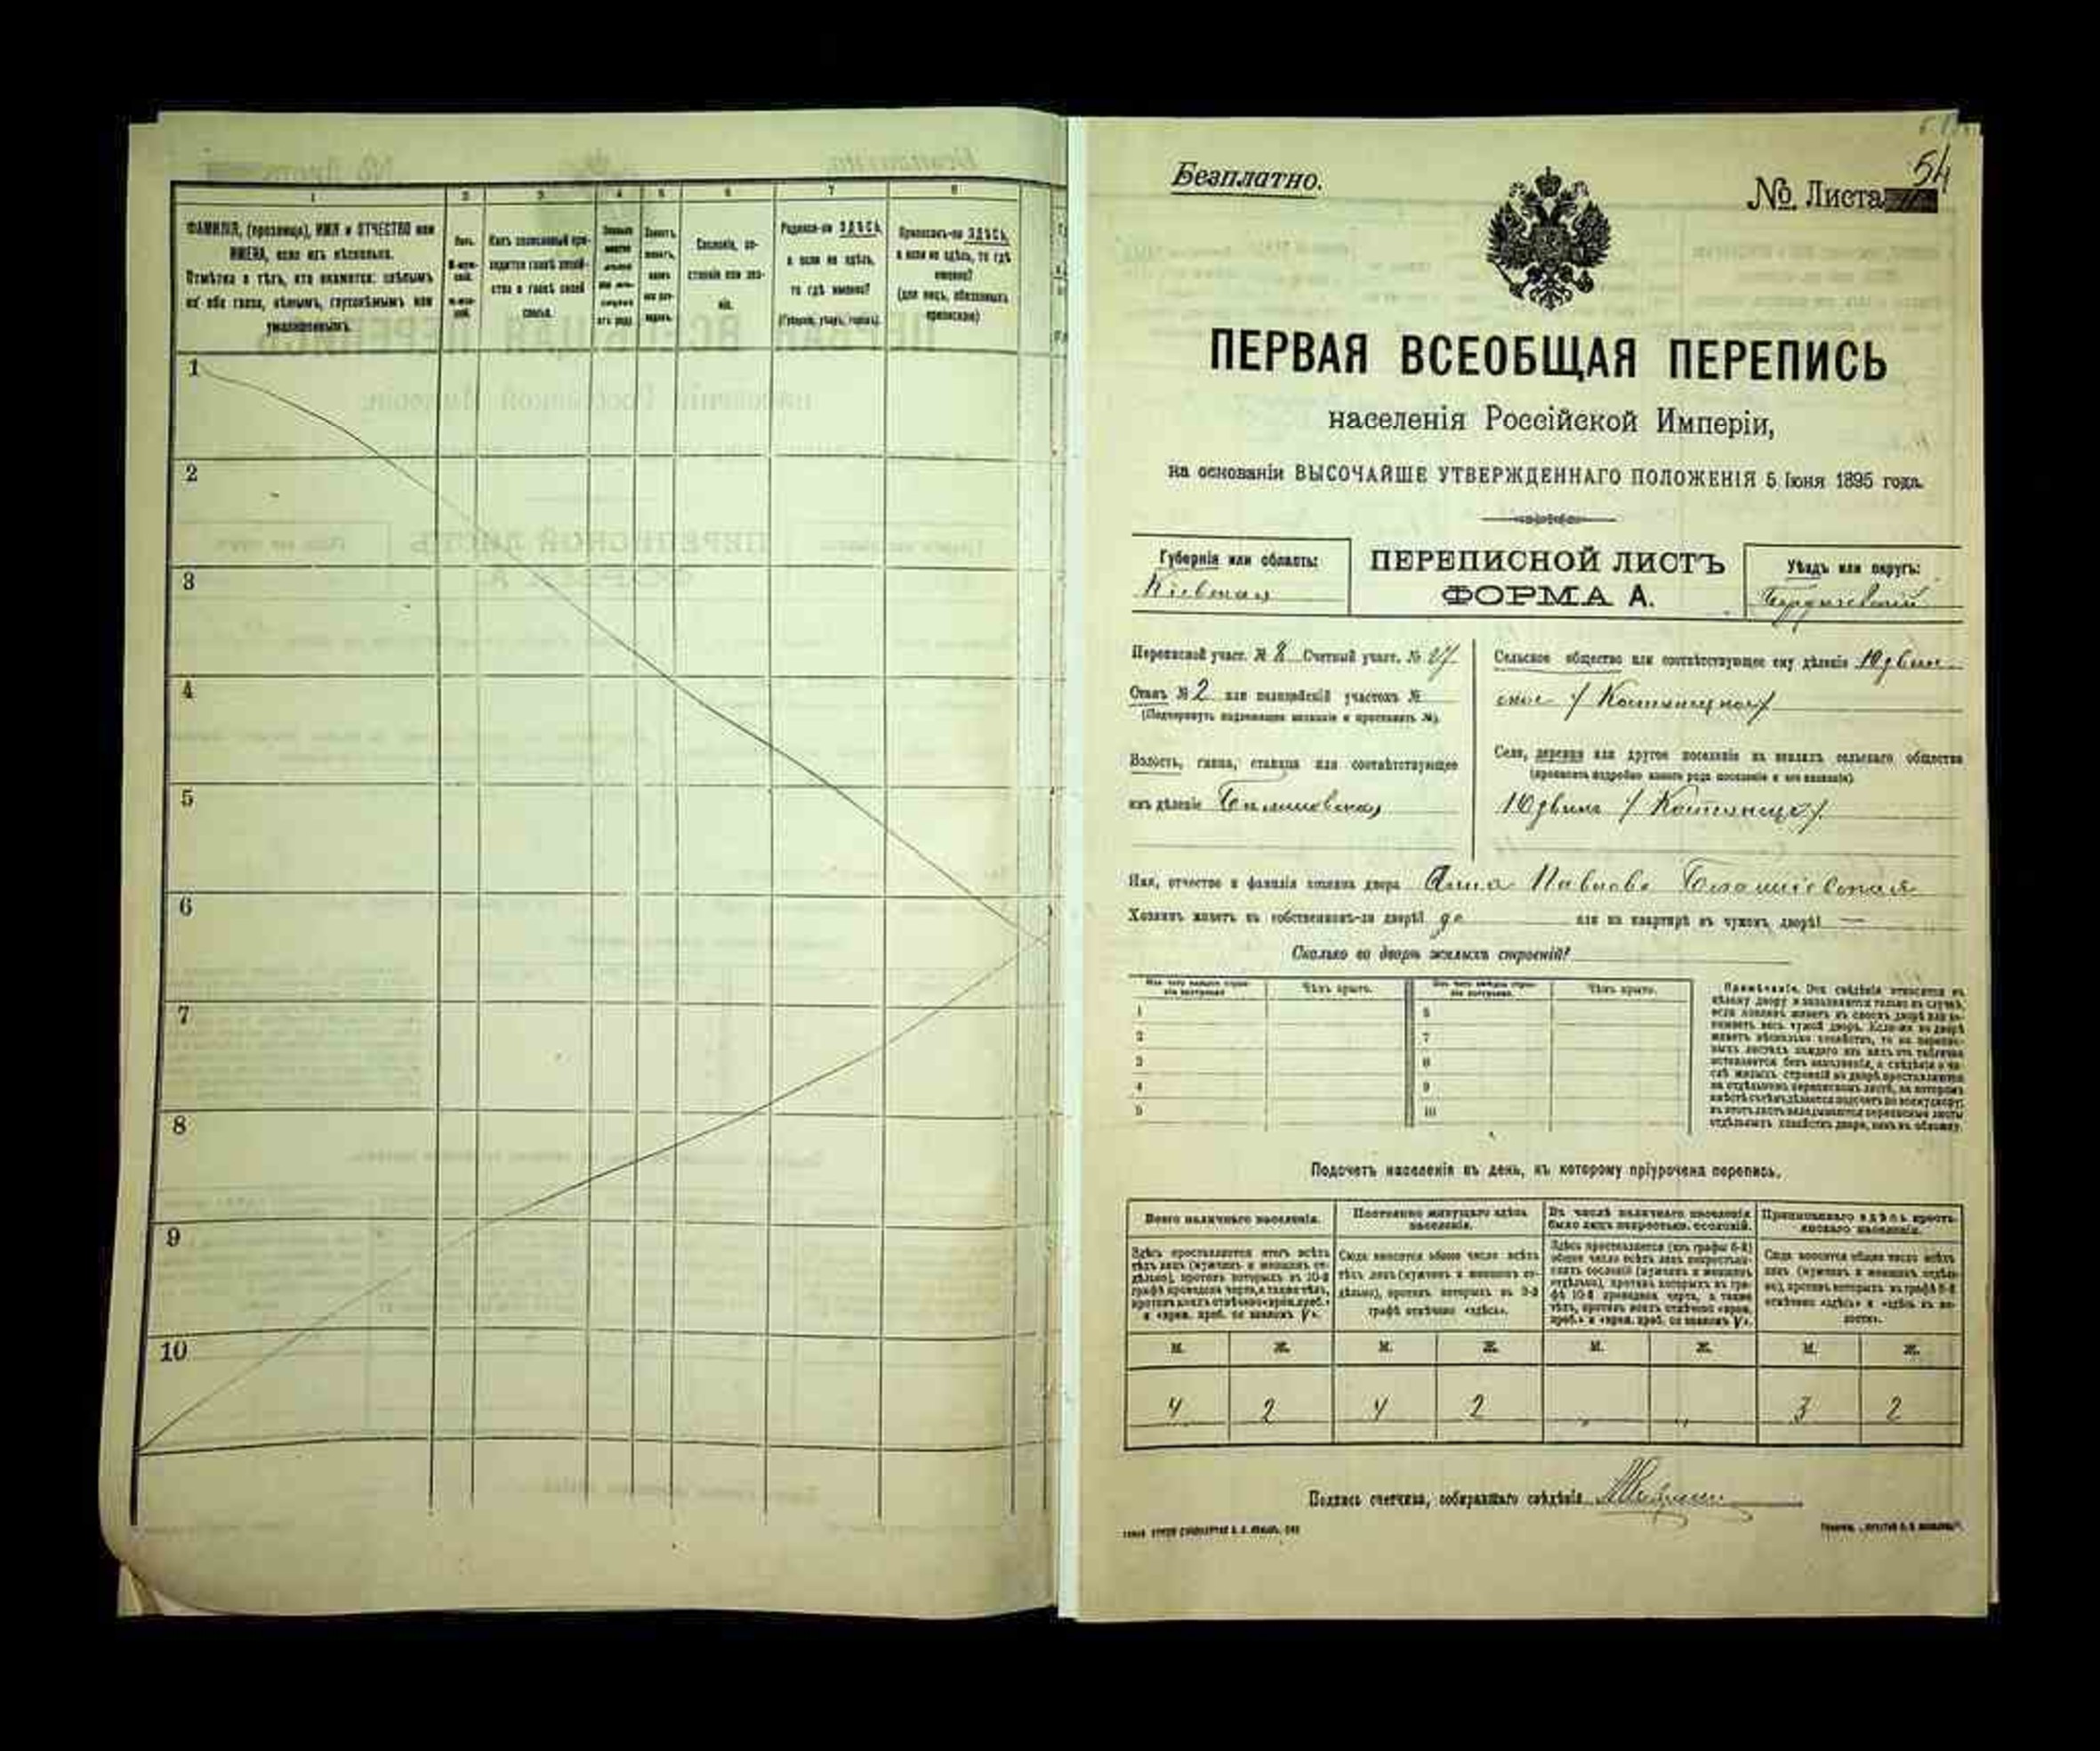 1 2 3 4 5 6 7 8
ФАМИЛІЯ, (прозвище), ИМЯ и ОТЧЕСТВО или
ИМЕНА, если ихъ нѣсколько.
Отмѣтка о тѣхъ, кто окажется: слѣпымъ
на оба глаза, нѣмымъ, глухонѣмымъ или
умалишеннымъ.
Полъ.
Какъ записанный при-
ходится главѣ хозяй-
ства и главѣ своей
семьи.
Сословіе, со-
стояніе или зва-
ніе.
Родился-ли ЗДѢСЬ,
а если не здѣсь,
то гдѣ именно?
(Губернія, уѣздъ, городъ).
Приписанъ-ли ЗДѢСЬ,
а если не здѣсь, то гдѣ
именно?
(для лицъ, обязанныхъ
припискою)
1
2
3
4
5
6
7
8
9
10
54
Безплатно.
№ Листа
ПЕРВАЯ ВСЕОБЩАЯ ПЕРЕПИСЬ
населенія Россійской Имперіи,
на основаніи ВЫСОЧАЙШЕ УТВЕРЖДЕННАГО ПОЛОЖЕНІЯ 5 Іюня 1895 года.
Губернія или область:
Кіевская
ПЕРЕПИСНОЙ ЛИСТЪ
ФОРМА А.
Уѣздъ или округъ:
Бердичевскій
Переписной участ. № 8 Счетный участ. № 27
Станъ № 2 или полицейскій участокъ №
(Подчеркнуть надлежащее названіе и проставить №).
Волость, гмина, станица или соотвѣтствующее
имъ дѣленіе
Сельское общество или соотвѣтствующее ему дѣленіе
Село, деревня или другое поселеніе на земляхъ сельскаго общества
(прописать подробно какого рода поселеніе и его названіе)
Имя, отчество и фамилія хозяина двора Анна Павлова
Хозяинъ живетъ въ собственномъ-ли дворѣ? да или на квартирѣ въ чужомъ дворѣ? —
Сколько во дворѣ жилыхъ строеній?
Изъ чего каждое строе-
ніе построено.
Чѣмъ крыто.
Изъ чего каждое строе-
ніе построено.
Чѣмъ крыто.
1 6
2 7
3 8
4 9
5 10
Примѣчаніе. Эти свѣдѣнія относятся къ
цѣлому двору и заполняются только въ случаѣ,
если хозяинъ живетъ въ своемъ дворѣ или за-
нимаетъ весь чужой дворъ. Если-же во дворѣ
живетъ нѣсколько хозяйствъ, то на перепис-
ныхъ листахъ каждаго изъ нихъ эта табличка
оставляется безъ заполненія, а свѣдѣнія о чи-
слѣ жилыхъ строеній во дворѣ проставляются
на отдѣльномъ переписномъ листѣ, на которомъ
вмѣстѣ съ тѣмъ дѣлается подсчетъ по всему двору;
въ этотъ листъ вкладываются переписные листы
отдѣльныхъ хозяйствъ двора, какъ въ обложку.
Подсчетъ населенія въ день, къ которому пріурочена перепись.
Всего наличнаго населенія.
Постоянно живущаго здѣсь
населенія.
Въ числѣ наличнаго населенія
было лицъ некрестьян. сословій.
Приписаннаго здѣсь кресть-
янскаго населенія.
Здѣсь проставляется итогъ всѣхъ
тѣхъ лицъ (мужчинъ и женщинъ от-
дѣльно), противъ которыхъ въ 10-й
графѣ проведена черта, а также тѣхъ,
противъ коихъ отмѣчено «врем. преб.»
и «врем. преб. со знакомъ V».
Сюда вносится общее число всѣхъ
тѣхъ лицъ (мужчинъ и женщинъ от-
дѣльно), противъ которыхъ въ 9-й
графѣ отмѣчено «здѣсь».
Здѣсь проставляется (изъ графы 6-й)
общее число всѣхъ лицъ некрестьян-
скихъ сословій (мужчинъ и женщинъ
отдѣльно), противъ которыхъ въ гра-
фѣ 10-й проведена черта, а также
тѣхъ, противъ коихъ отмѣчено «врем.
преб.» и «врем. преб. со знакомъ V».
Сюда вносится общее число всѣхъ
лицъ (мужчинъ и женщинъ отдѣль-
но), противъ которыхъ въ графѣ 8-й
отмѣчено «здѣсь» и «здѣсь въ во-
лости».
М. Ж. М. Ж. М. Ж. М. Ж.
4 2 4 2 „ „ 3 2
Подпись счетчика, собиравшаго свѣдѣнія